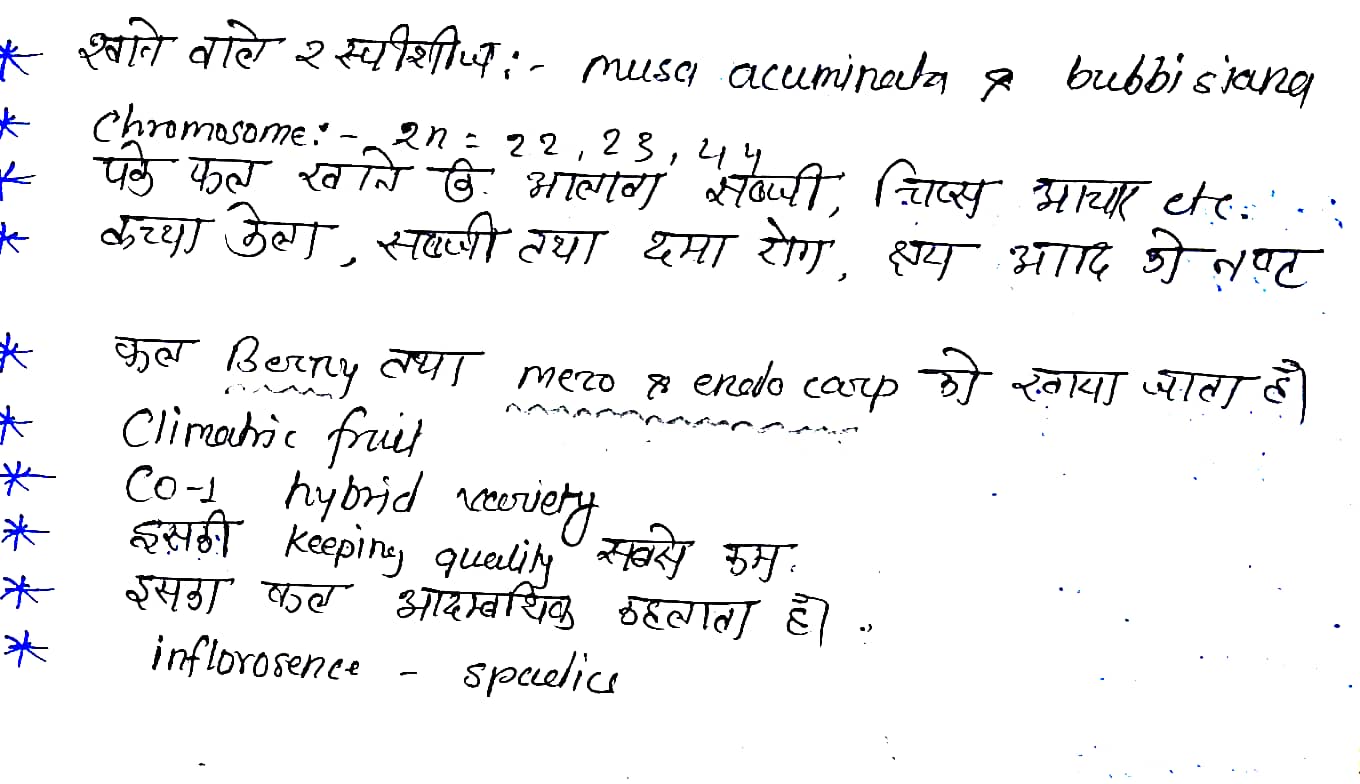 * खाने वाले २ स्पीशीज :- musa acuminata & bubbisiana
* Chromosome :- 2n = 22, 23, 44
* पके फल खाने के आलावा सब्जी, चिप्स आचार etc.
* कच्चा केला, सब्जी तथा दमा रोग, क्षय आदि को नष्ट
* फल Berry तथा mezo & endo carp को खाया जाता है।
* Climatric fruit
* CO-1 hybrid variety
* इसकी keeping quality सबसे कम.
* इसका फल कहलाता है।
* inflorosence - spadics